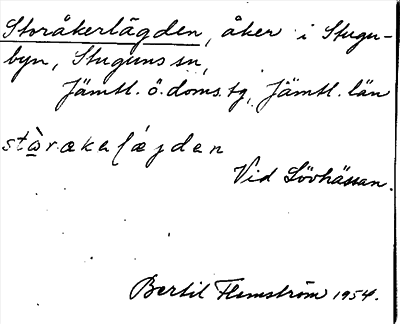 Storåkerlägden, åker i Stugu-
byn, Stuguns sn,
Jämtl. ö. doms. tg, Jämtl. län
Vid Lövhässan.
Bertil Flemström 1954.